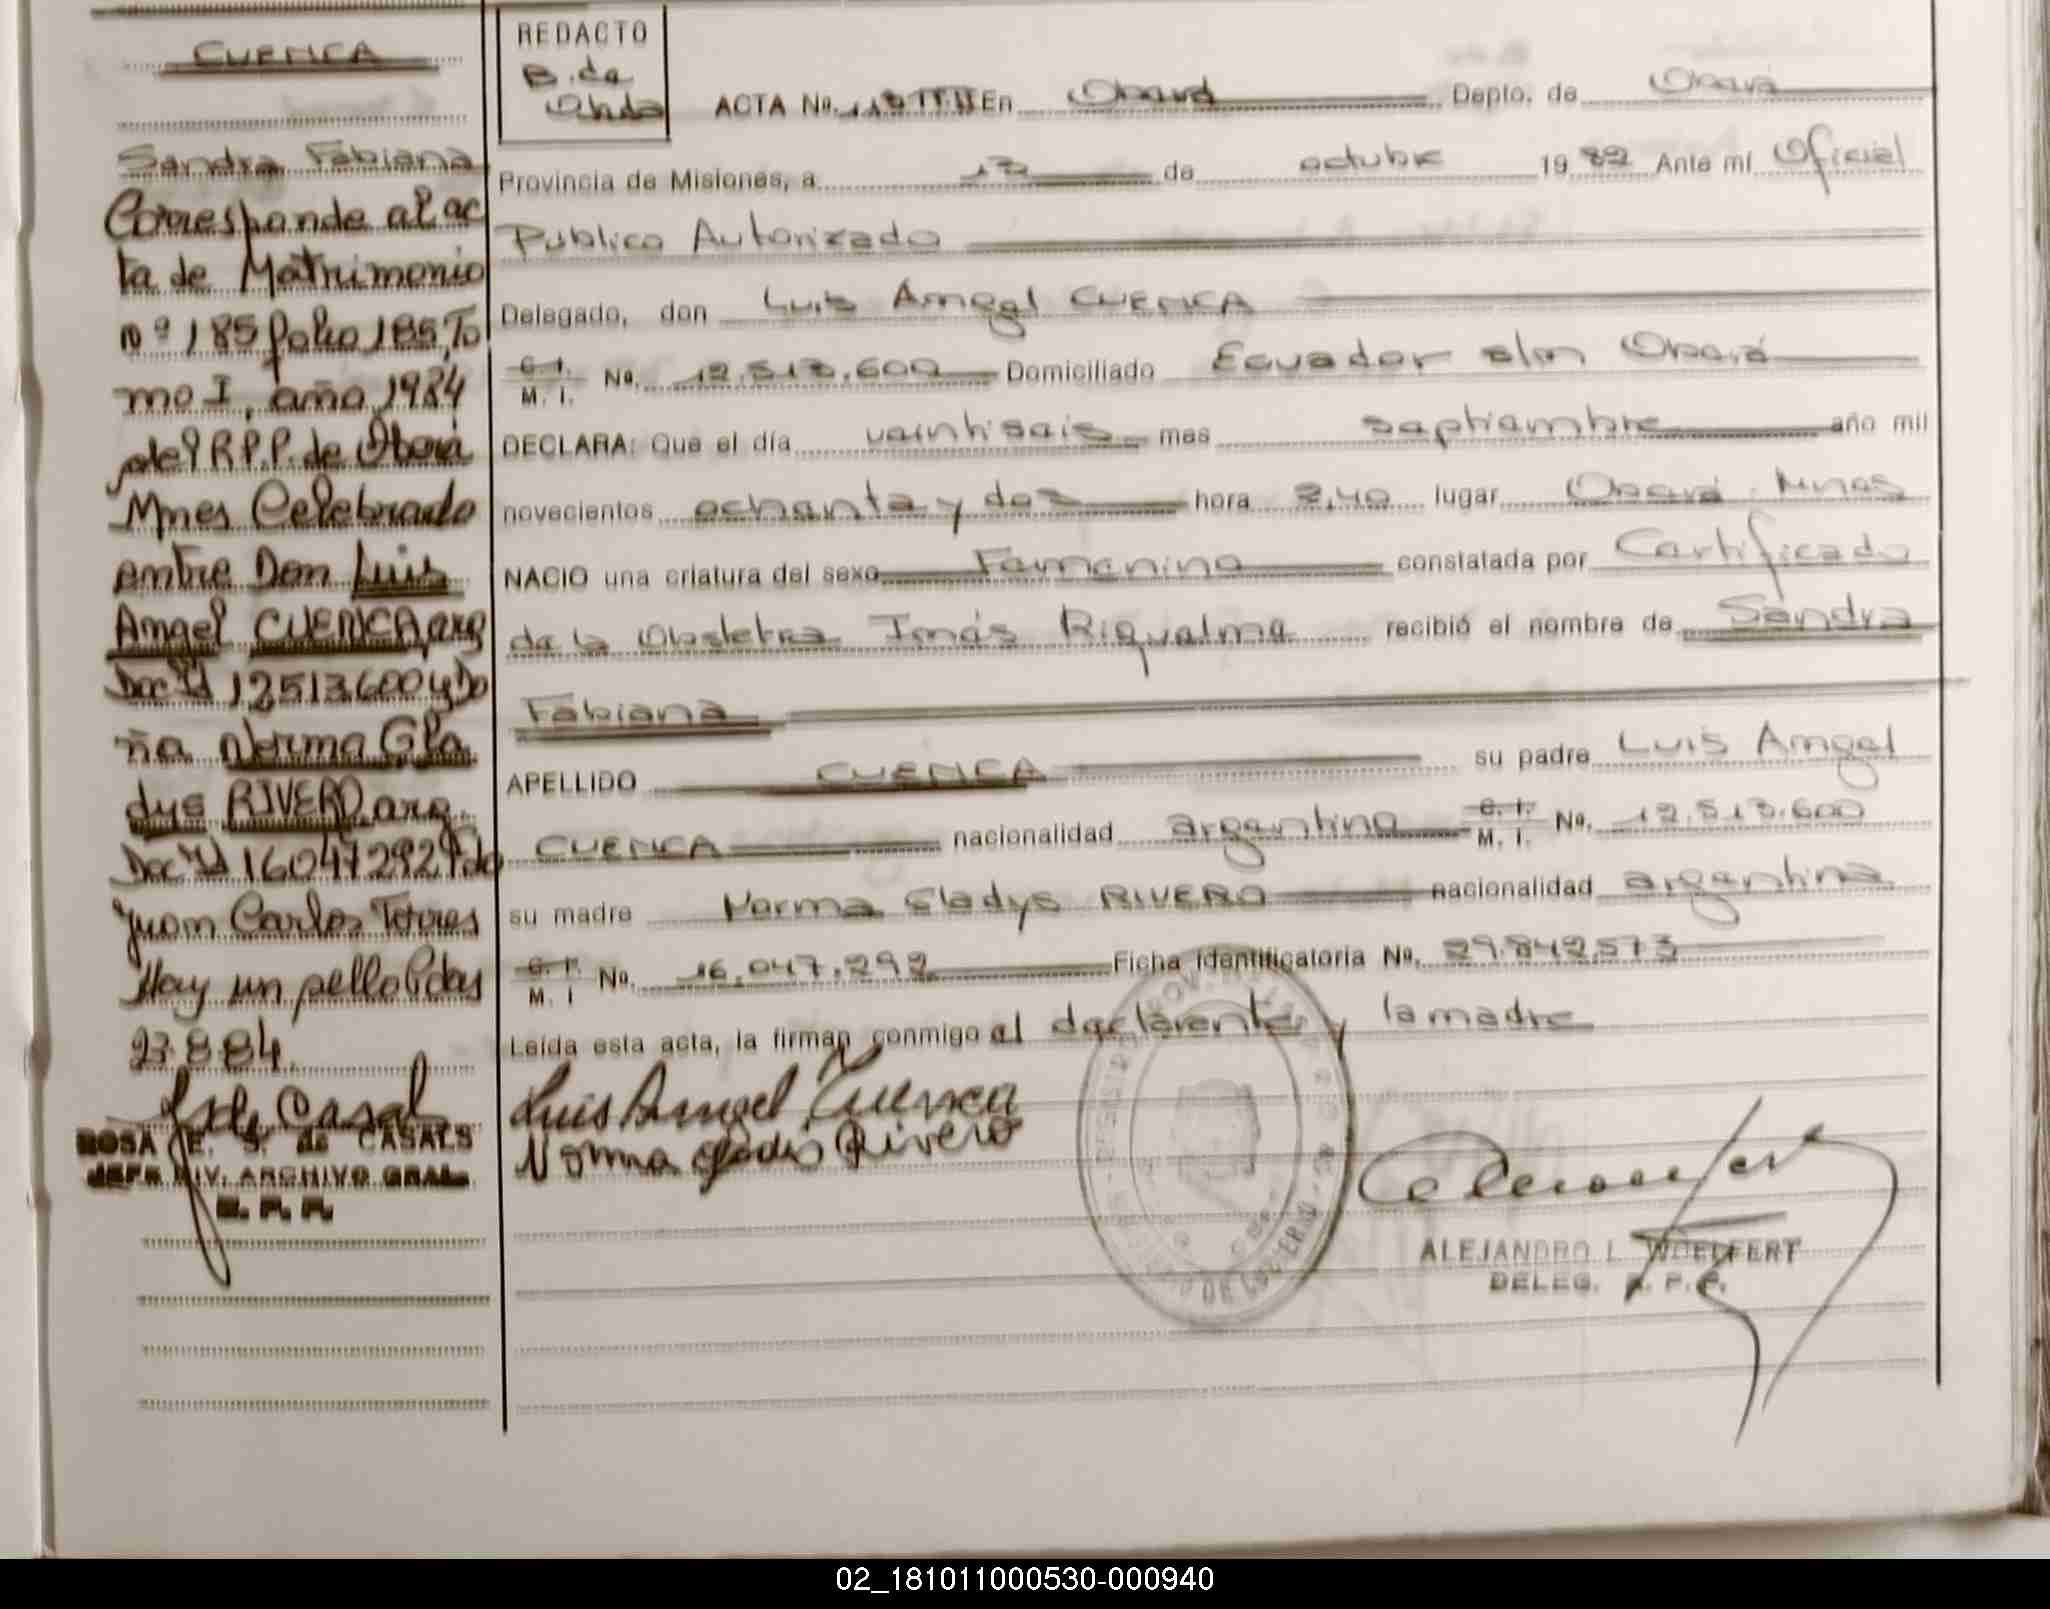 CUENCA
Sandra Fabiana
Corresponde al ac
ta de Matrimonio
nº 185 folio 185, To
mo I, año 1984
del R.P.P. de Oberá
Mnes Celebrado
entre Don Luis
Angel CUENCA arg
Doc Id 12513600 y Do
ña Norma Gla
dys RIVERO, arg.
Doc Id 16047292 Fdo
Juan Carlos Torres
Hay un sello Pdas
23.8.84.
ROSA E. S. de CASALS
JEFE DIV. ARCHIVO GRAL.
R. P. P.
REDACTO
B. de
ACTA No. En Oberá Depto. de Oberá
Provincia de Misiones, a 13 de octubre 1982 Ante mí Oficial
Público Autorizado
Delegado, don Luis Angel CUENCA
C. I.
M. I. No. 12.513.600 Domiciliado Ecuador s/n Oberá
DECLARA: Que el día veintiseis mes septiembre año mil
novecientos ochenta y dos hora 2,40 lugar Oberá - Mnes
NACIO una criatura del sexo Femenino constatada por Certificado
de la Obstetra Inés Riquelme recibió el nombre de Sandra
Fabiana
APELLIDO CUENCA su padre Luis Angel
CUENCA nacionalidad argentina C. I.
M. I. No. 12.513.600
su madre Norma Gladys RIVERO nacionalidad argentina
C. I.
M. I No. 16.047.292 Ficha identificatoria No. 29.842.573
Leída esta acta, la firman conmigo el declarante y la madre
Luis Angel Cuenca
Norma Gladis Rivero
ALEJANDRO L. WOELFERT
DELEG. R. P. P.
02_181011000530-000940